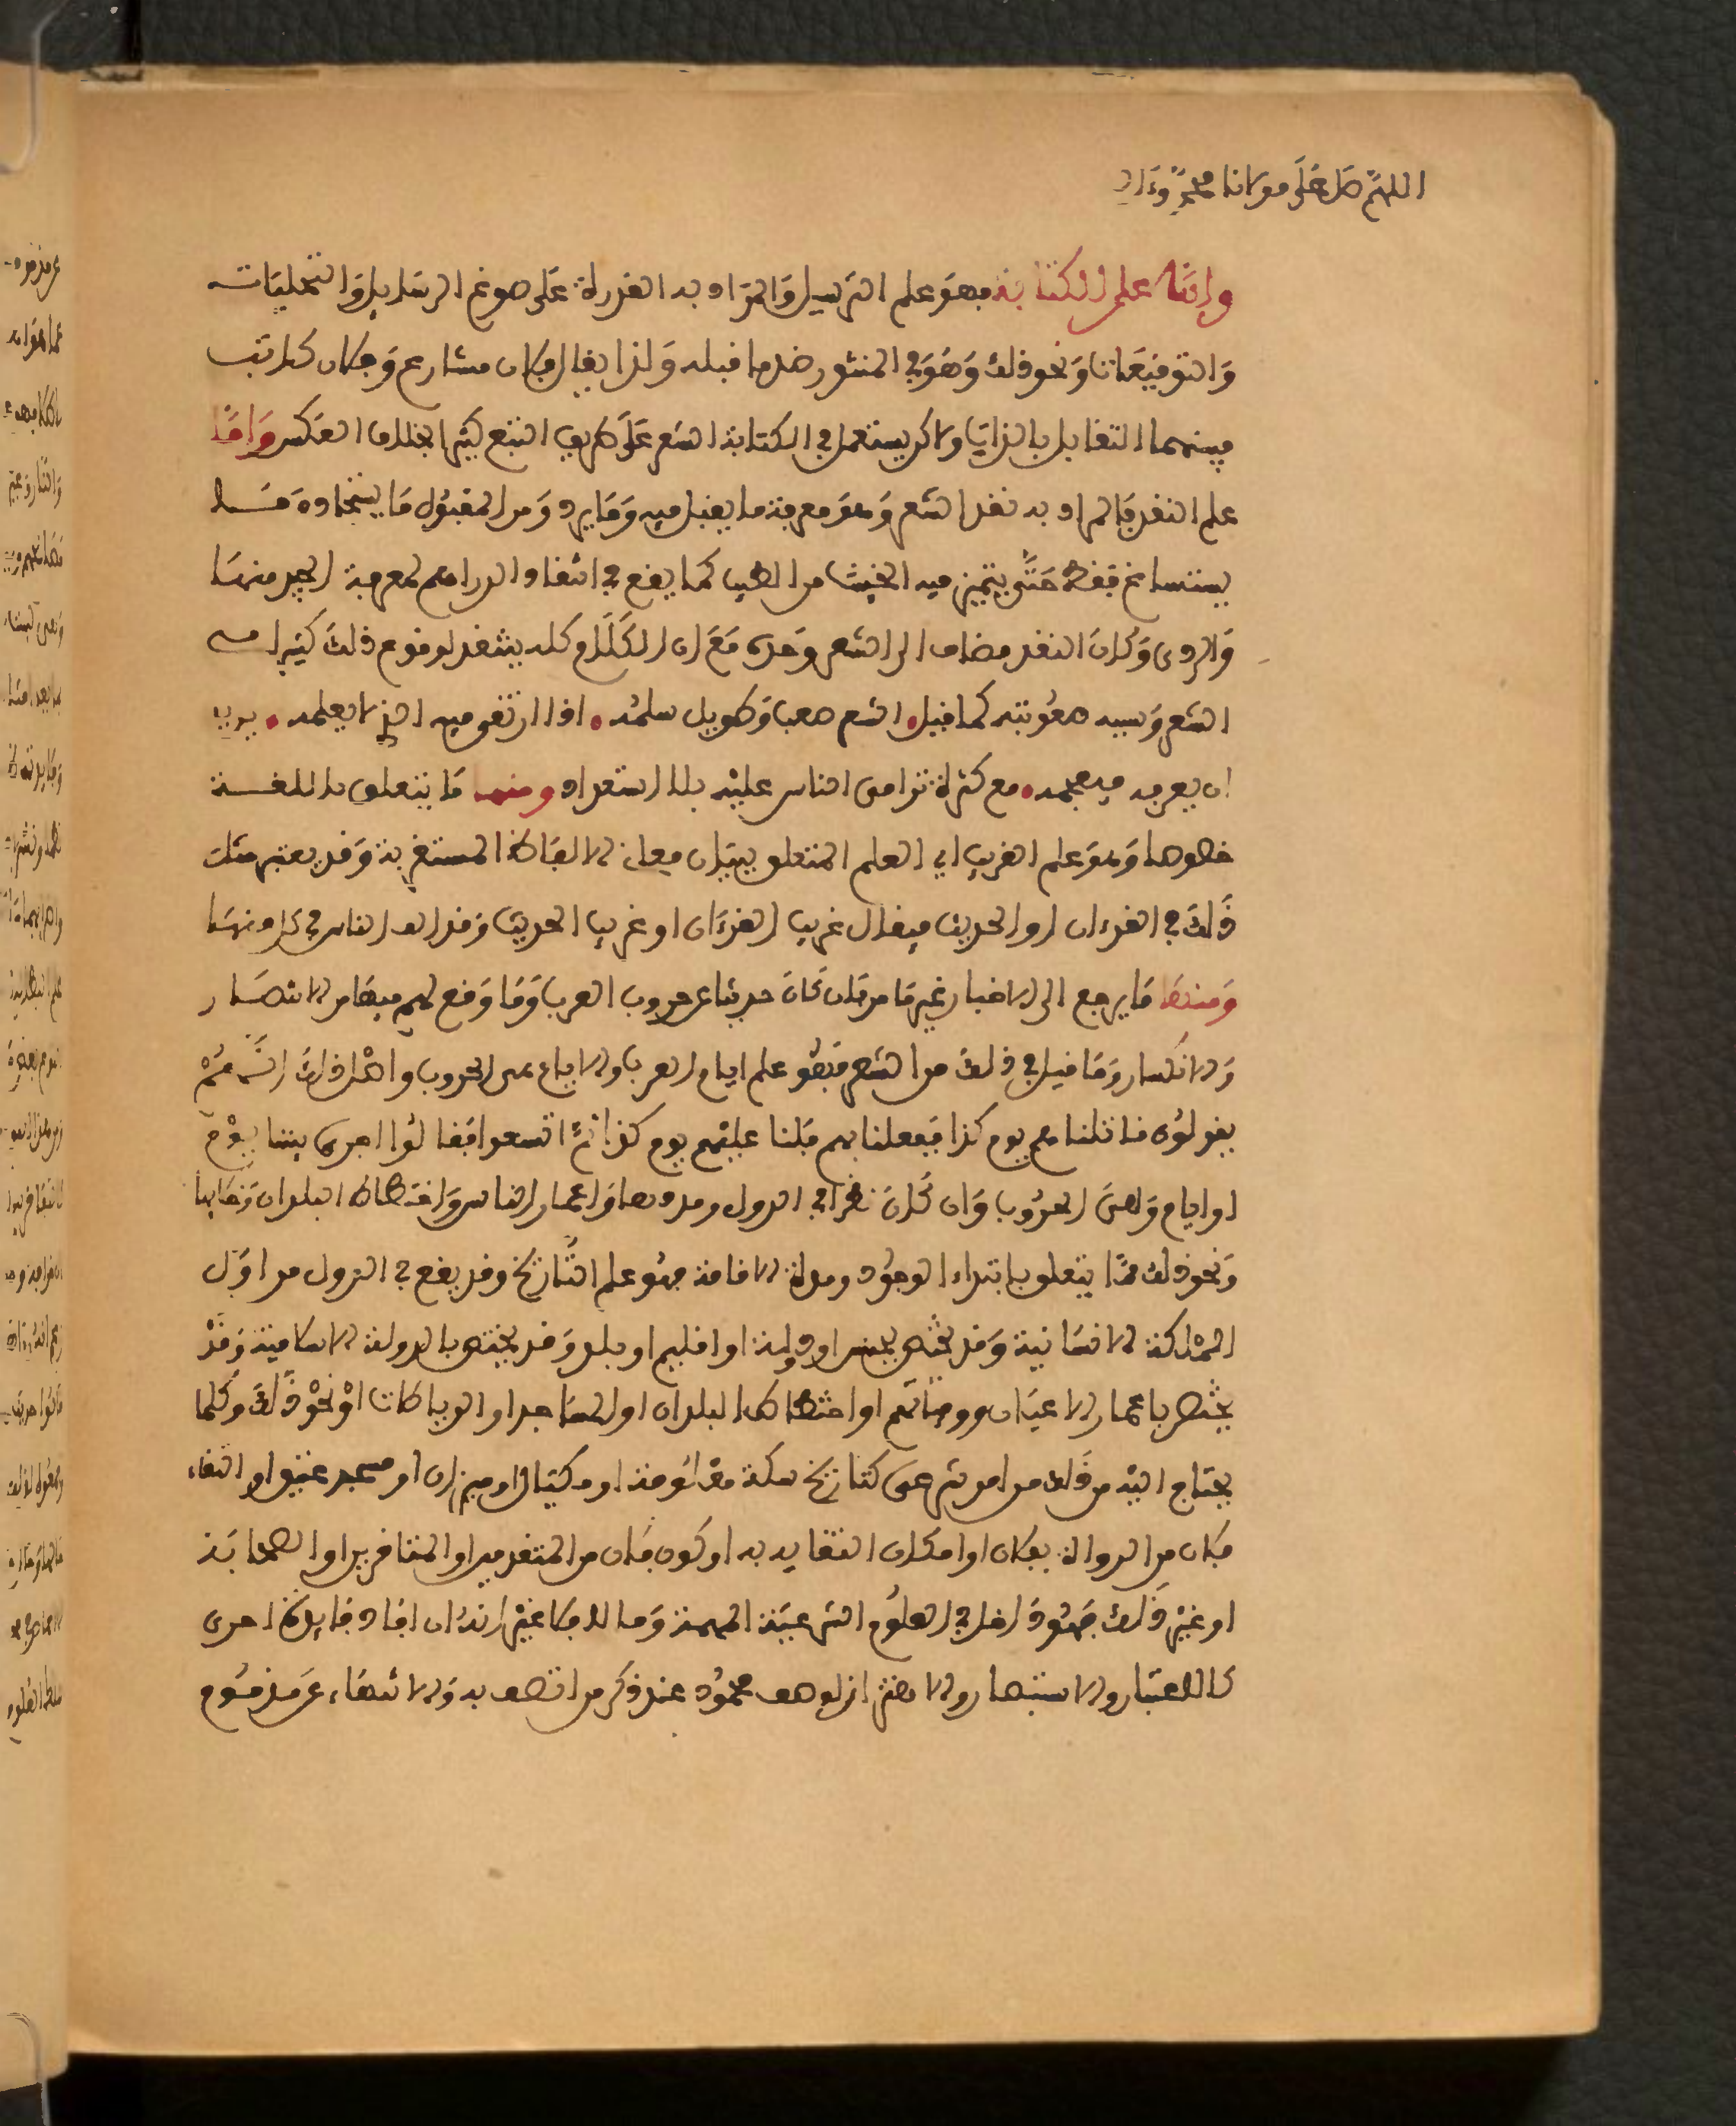 اللهم صل على مولانا محمد وءاله
واما علم الكتابة فهو علم الترسيل والمراد به القدرة على صوغ الرسايل والتحليات
والتوقيعات ونحو ذلك وهو في المنثور ضد ما قبله ولذا يقال فلان شاعر وفلان كاتب
فبينهما التقابل بالذات ولاكن يستعمل في الكتابة الشعر على طريق التبع كثيرا بخلاف العكس واما
علم النقد فالمراد به نقد الشعر وهو معرفة ما يقبل فيه وما يرد ومن المقبول ما يستجاد وما
يستساغ فقط حتى يتميز فيه الخبيث من الطيب كما يقع في انتقاد الدراهم لمعرفة الجيد منها
والردى وكان النقد مضافا الى الشعر وحده مع ان الكلام كله ينتقد لوقوع ذلك كثيرا في
الشعر وسببه صعوبته كما قيل الشعر صعب وطويل سلمه اذا ارتقى فيه الذي لا يعلمه يريد
ان يعربه فيعجمه مع كثرة ترامى الناس عليه بلا استعداد ومنها ما يتعلق باللغة
خصوصا وهو علم الغريب اي العلم المتعلق ببيان معاني الالفاظ المستغربة وقد يعتبر مثل
ذلك في القرءان او الحديث فيقال غريب القرءان او غريب الحديث وقد الف الناس في كل منها
ومنها ما يرجع الى الاخبار غير ما مر فان كان حديثا عن حروب العرب وما وقع لهم فيها من الانتصار
والانكسار وما قيل في ذلك من الشعر فهو علم ايام العرب والايام هي الحروب واصل ذلك انهم
يقولون قاتلناهم يوم كذا ففعلنا بهم فملنا عليهم يوم كذا ثم اتسعوا فقالوا جرى بيننا يوم
او ايام وهي الحروب وان كان نظرا في الدول ومددها واعمار الناس واختطاط البلدان وخرابها
ونحو ذلك مما يتعلق بابتداء الوجود ومدة الاقامة فهو علم التاريخ وقد يقع في الدول من اول
المملكة الانسانية وقد يختص بجنس او دولة او اقليم او بلد وقد يختص بالدولة الاسلامية وقد
يختص باعمار الاعيان ووفياتهم او اختطاط البلدان او المساجد او الرباطات او نحو ذلك وكلما
يحتاج اليه من ذلك من امر شرعي كتاريخ سكة معلومة او مكيال او ميزان او مسجد عتيق او التقاء
فلان من الرواة بفلان او امكان التقائه به او كون فلان من المتقدمين او المتاخرين او الصحابة
او غير ذلك فهو داخل في العلوم الشرعية المهمة وما لا فلا غير انه ان افاد فايدة اخرى
كالاعتبار والاستبصار والاهتزاز لوصف محمود عند ذكر من اتصف به والانتهاء عن مذموم